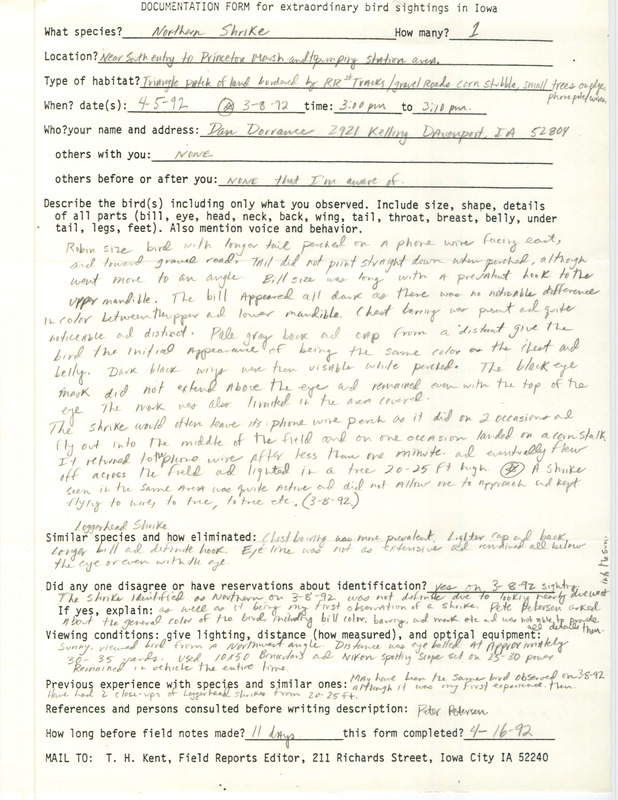 DOCUMENTATION FORM for extraordinary bird sightings in Iowa
What species? Northern Shrike How many? 1
Location? Near South entry to Princeton Marsh and pumping station area.
Type of habitat? Triangle patch of land bordered by RR Tracks/gravel Roads corn stubble, small trees on edge,
phone pole/wires.
When? date(s): 4-5-92 3-8-92 time: 3:00 pm to 3:10 pm.
Who? your name and address: Dan Dorrance 2921 Kelling Davenport, IA 52804
others with you: NONE
others before or after you: NONE that I'm aware of.
Describe the bird(s) including only what you observed. Include size, shape, details
of all parts (bill, eye, head, neck, back, wing, tail, throat, breast, belly, under
tail, legs, feet). Also mention voice and behavior.
Robin size bird with longer tail perched on a phone wire facing east,
and toward gravel road. Tail did not point straight down when perched, although
went more to an angle. Bill size was long with a prevalent hook to the
upper mandible. The bill Appeared all dark as there was no noticable difference
in color between the upper ad lower mandible. Chest barring was present ad quite
noticeable ad distinct. Pale gray back ad cap from a distant give the
bird the initial Appearance of being the same color as the chest and
belly. Dark black wings were then visable while perched. The black eye
mask did not extend Above the eye ad remained even with the top of the
eye. The mask was also limited in the area covered.
The shrike would often leave its phone wire perch as it did on 2 occasions ad
fly out into the middle of the field and on one occasion landed on a corn stalk
It returned to the phone wire after less than one minute. ad eventually flew
off across the field ad lighted in a tree 20-25 ft high. A shrike
seen in the same Area was quite Active ad did not Allow me to Approach ad kept
flying to wire, to tree, to tree etc. (3-8-92)
Loggerhead Shrike
Similar species and how eliminated: Chest barring was more prevalent. Lighter cap ad back
Longer bill ad definite hook. Eye line was not as extensive ad remained all below
the eye or even with the eye.
Did any one disagree or have reservations about identification? yes on 3-8-92 sighting
The Shrike identified as Northern on 3-8-92 was not definite due to looking nearly due west
into the sun.
If yes, explain: as well as it being my first observation of a shrike. Pete Petersen asked
About the general color of the bird including bill color, barring, ad mask etc ad was not able to provide
all details then.
Viewing conditions: give lighting, distance (how measured), and optical equipment:
Sunny. viewed bird from a Northwest angle. Distance was eye balled At Approximately
30-35 yards. Used 10x50 Binoculars ad Nikon Spotting Scope set on 25-30 power
Remained in vehicle the entire time.
Previous experience with species and similar ones: May have been the Same bird observed on 3-8-92
although it was my first experience then.
Have had 2 close-ups of Loggerhead shrikes from 20-25 ft.
References and persons consulted before writing description: Peter Petersen
How long before field notes made? 11 days this form completed? 4-16-92
MAIL TO: T. H. Kent, Field Reports Editor, 211 Richards Street, Iowa City IA 52240